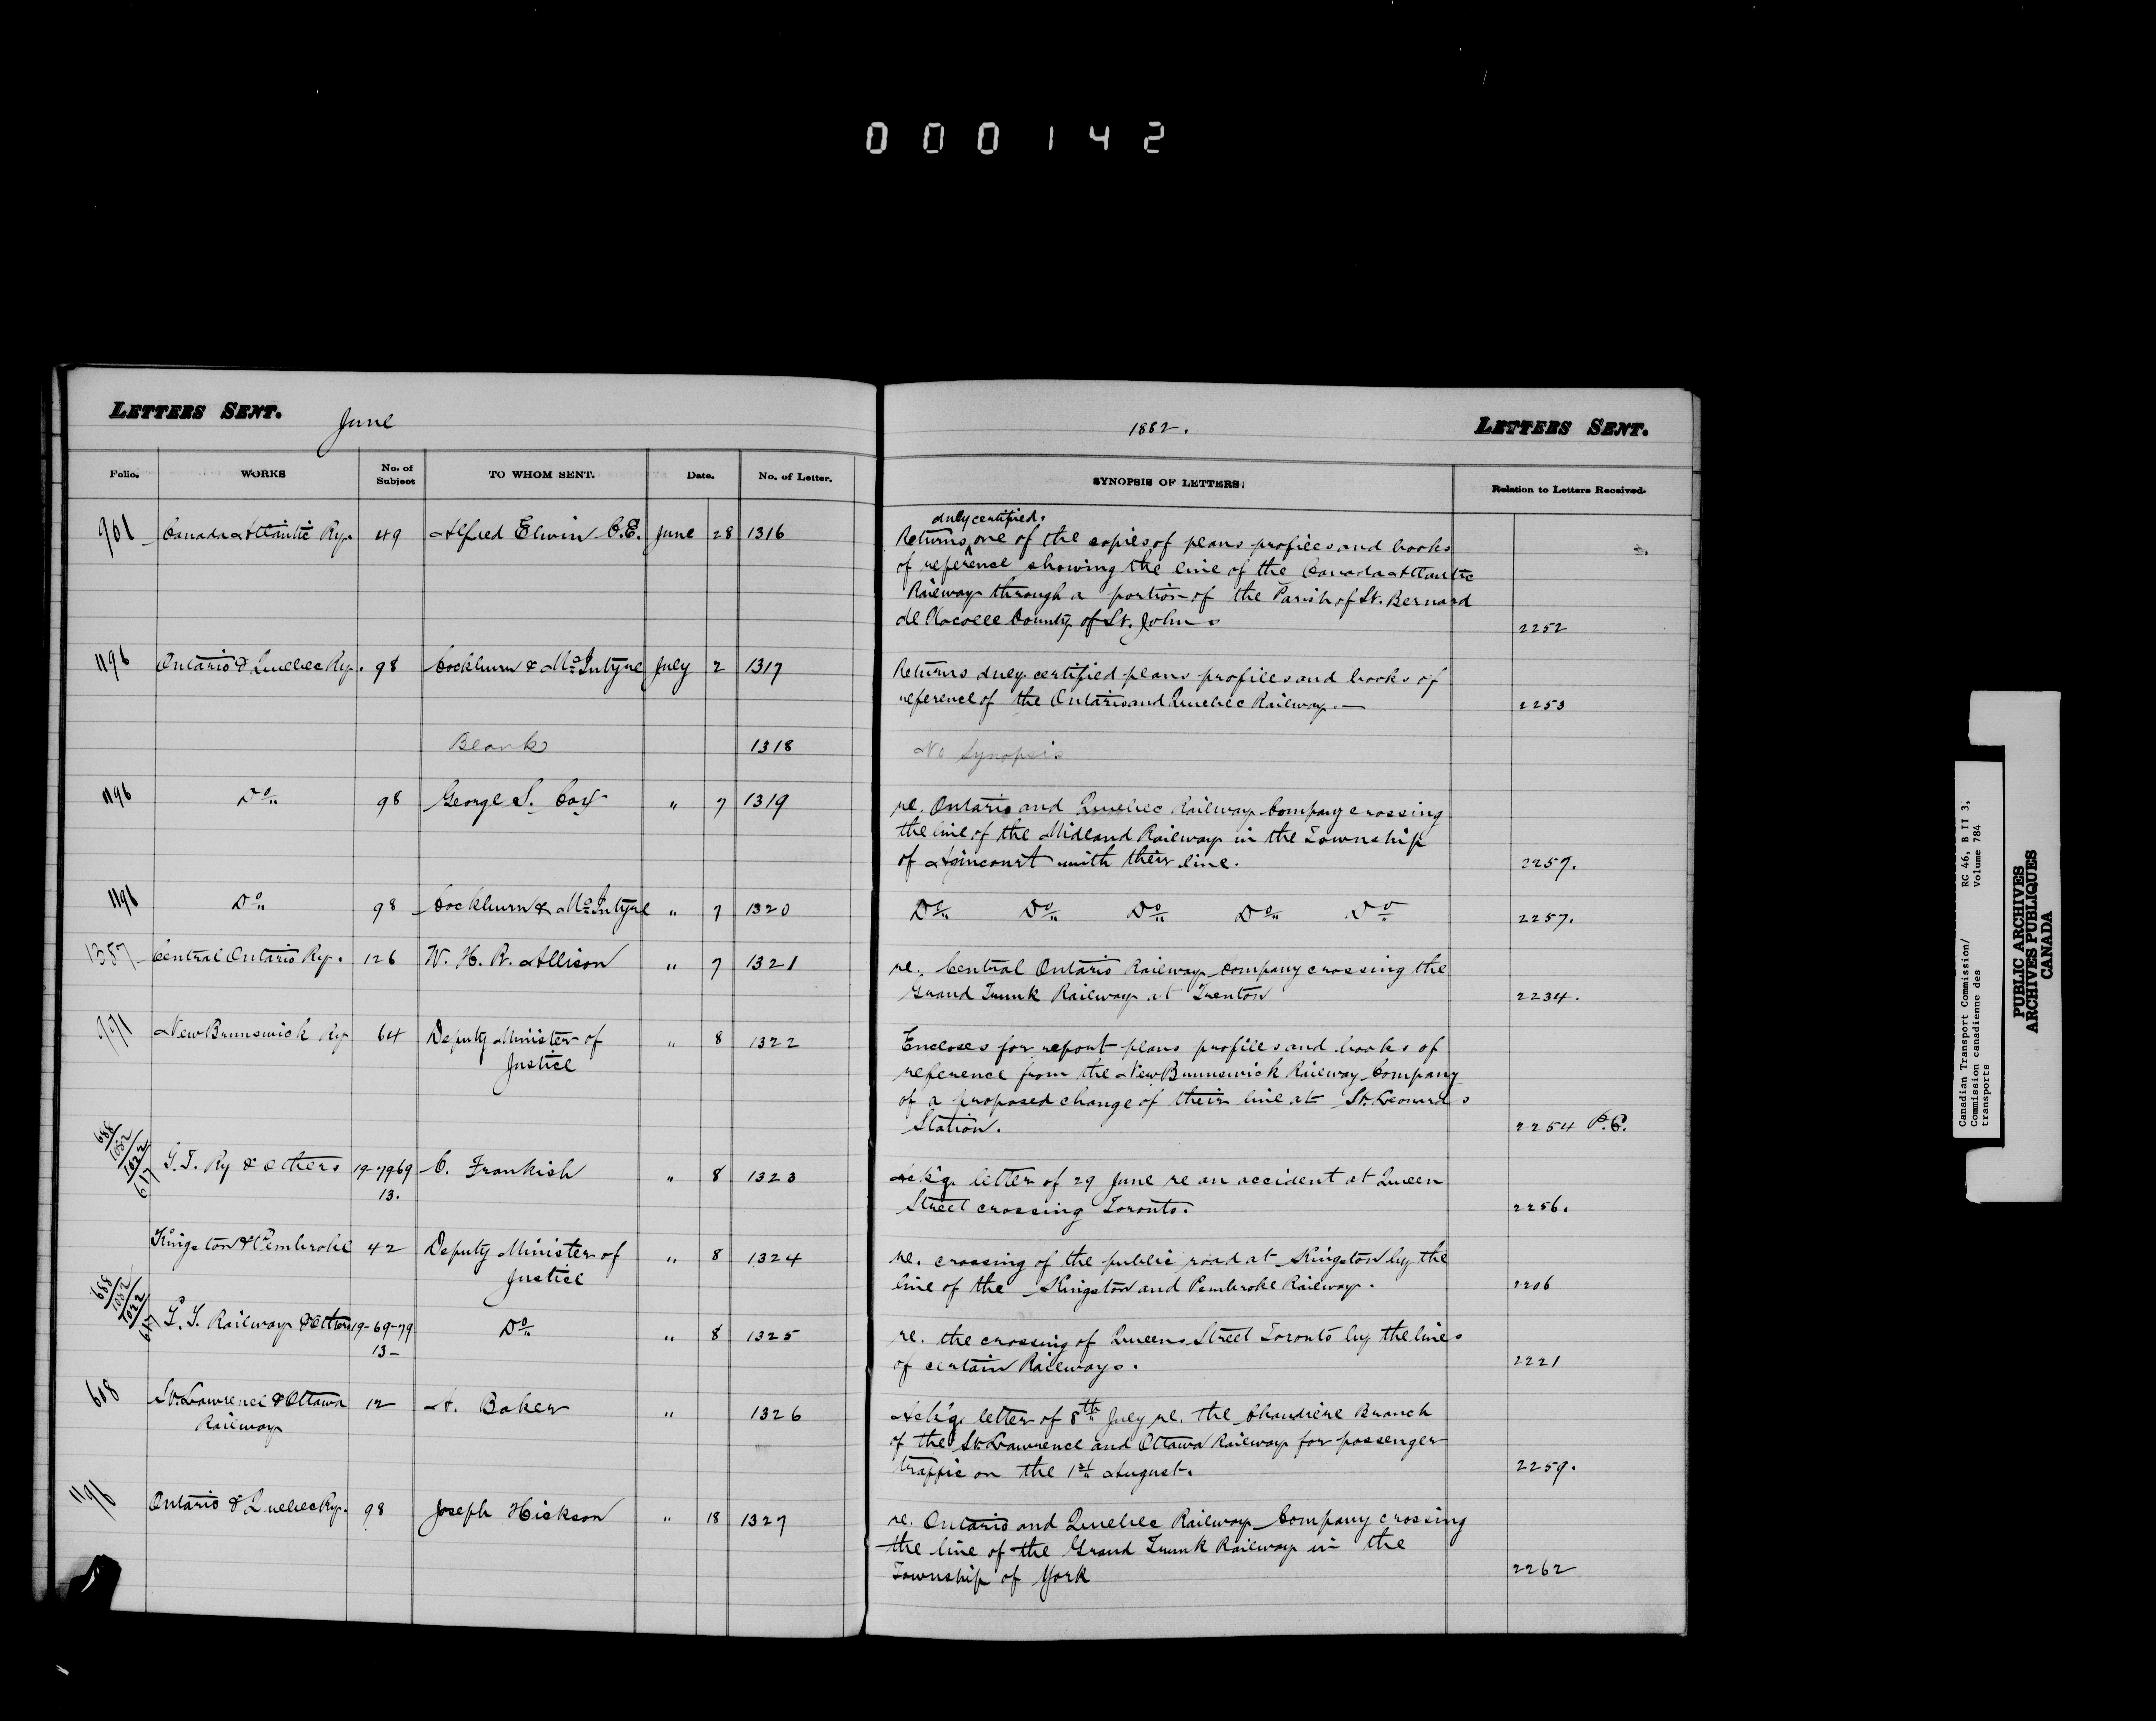 000142
LETTERS SENT. June 1882. LETTERS SENT.
Folio. WORKS No. of Subject TO WHOM SENT. Date. No. of Letter. SYNOPSIS OF LETTERS. Relation to Letters Received.
duly certified.
901 Canada Atlantic Ry. 49 Alfred Elwin C.E. June 28 1316 Returns ^ one of the copies of plans profiles and books
of reference showing the line of the Canada Atlantic
Railway through a portion of the Parish of St. Bernard
de Lacolle County of St. Johns. 2252
1196 Ontario & Quebec Ry. 98 Cockburn & McIntyre July 2 1317 Returns duly certified plans profiles and books of
reference of the Ontario and Quebec Railway.— 2253
Blank 1318 No Synopsis
1196 Do 98 George S. Cox " 7 1319 re. Ontario and Quebec Railway Company crossing
the line of the Midland Railway in the Township
of Agincourt with their line. 2257.
1196 Do 98 Cockburn & McIntyre " 7 1320 Do Do Do Do Do 2257.
1387 Central Ontario Ry. 126 W. H. R. Allison " 7 1321 re. Central Ontario Railway Company crossing the
Grand Trunk Railway at Trenton 2234.
971 New Brunswick Ry 64 Deputy Minister of " 8 1322 Encloses for report plans profiles and books of
Justice reference from the New Brunswick Railway Company
of a proposed change of their line at St. Leonards
Station. 2254 P.C.
688/1052/1022/617 G.T. Ry & others 19-79-69 C. Frankish " 8 1323 Ack'g letter of 29 June re an accident at Queen
13. Street crossing Toronto. 2256.
Kingston & Pembroke 42 Deputy Minister of " 8 1324 re. crossing of the public road at Kingston by the
Justice line of the Kingston and Pembroke Railway. 2206
688/1052/1022/617 G.T. Railway & others 19-69-79 Do " 8 1325 re. the crossing of Queens Street Toronto by the lines
13- of certain Railways. 2221
608 St. Lawrence & Ottawa 12 A. Baker " 1326 Ack'g letter of 8th July re. the Chaudiere Branch
Railway of the St. Lawrence and Ottawa Railway for passenger
traffic on the 1st August. 2259.
1196 Ontario & Quebec Ry. 98 Joseph Hickson " 18 1327 re. Ontario and Quebec Railway Company crossing
the line of the Grand Trunk Railway in the
Township of York 2262
Canadian Transport Commission/ RG 46, B II 3,
Commission canadienne des Volume 784
transports
PUBLIC ARCHIVES
ARCHIVES PUBLIQUES
CANADA